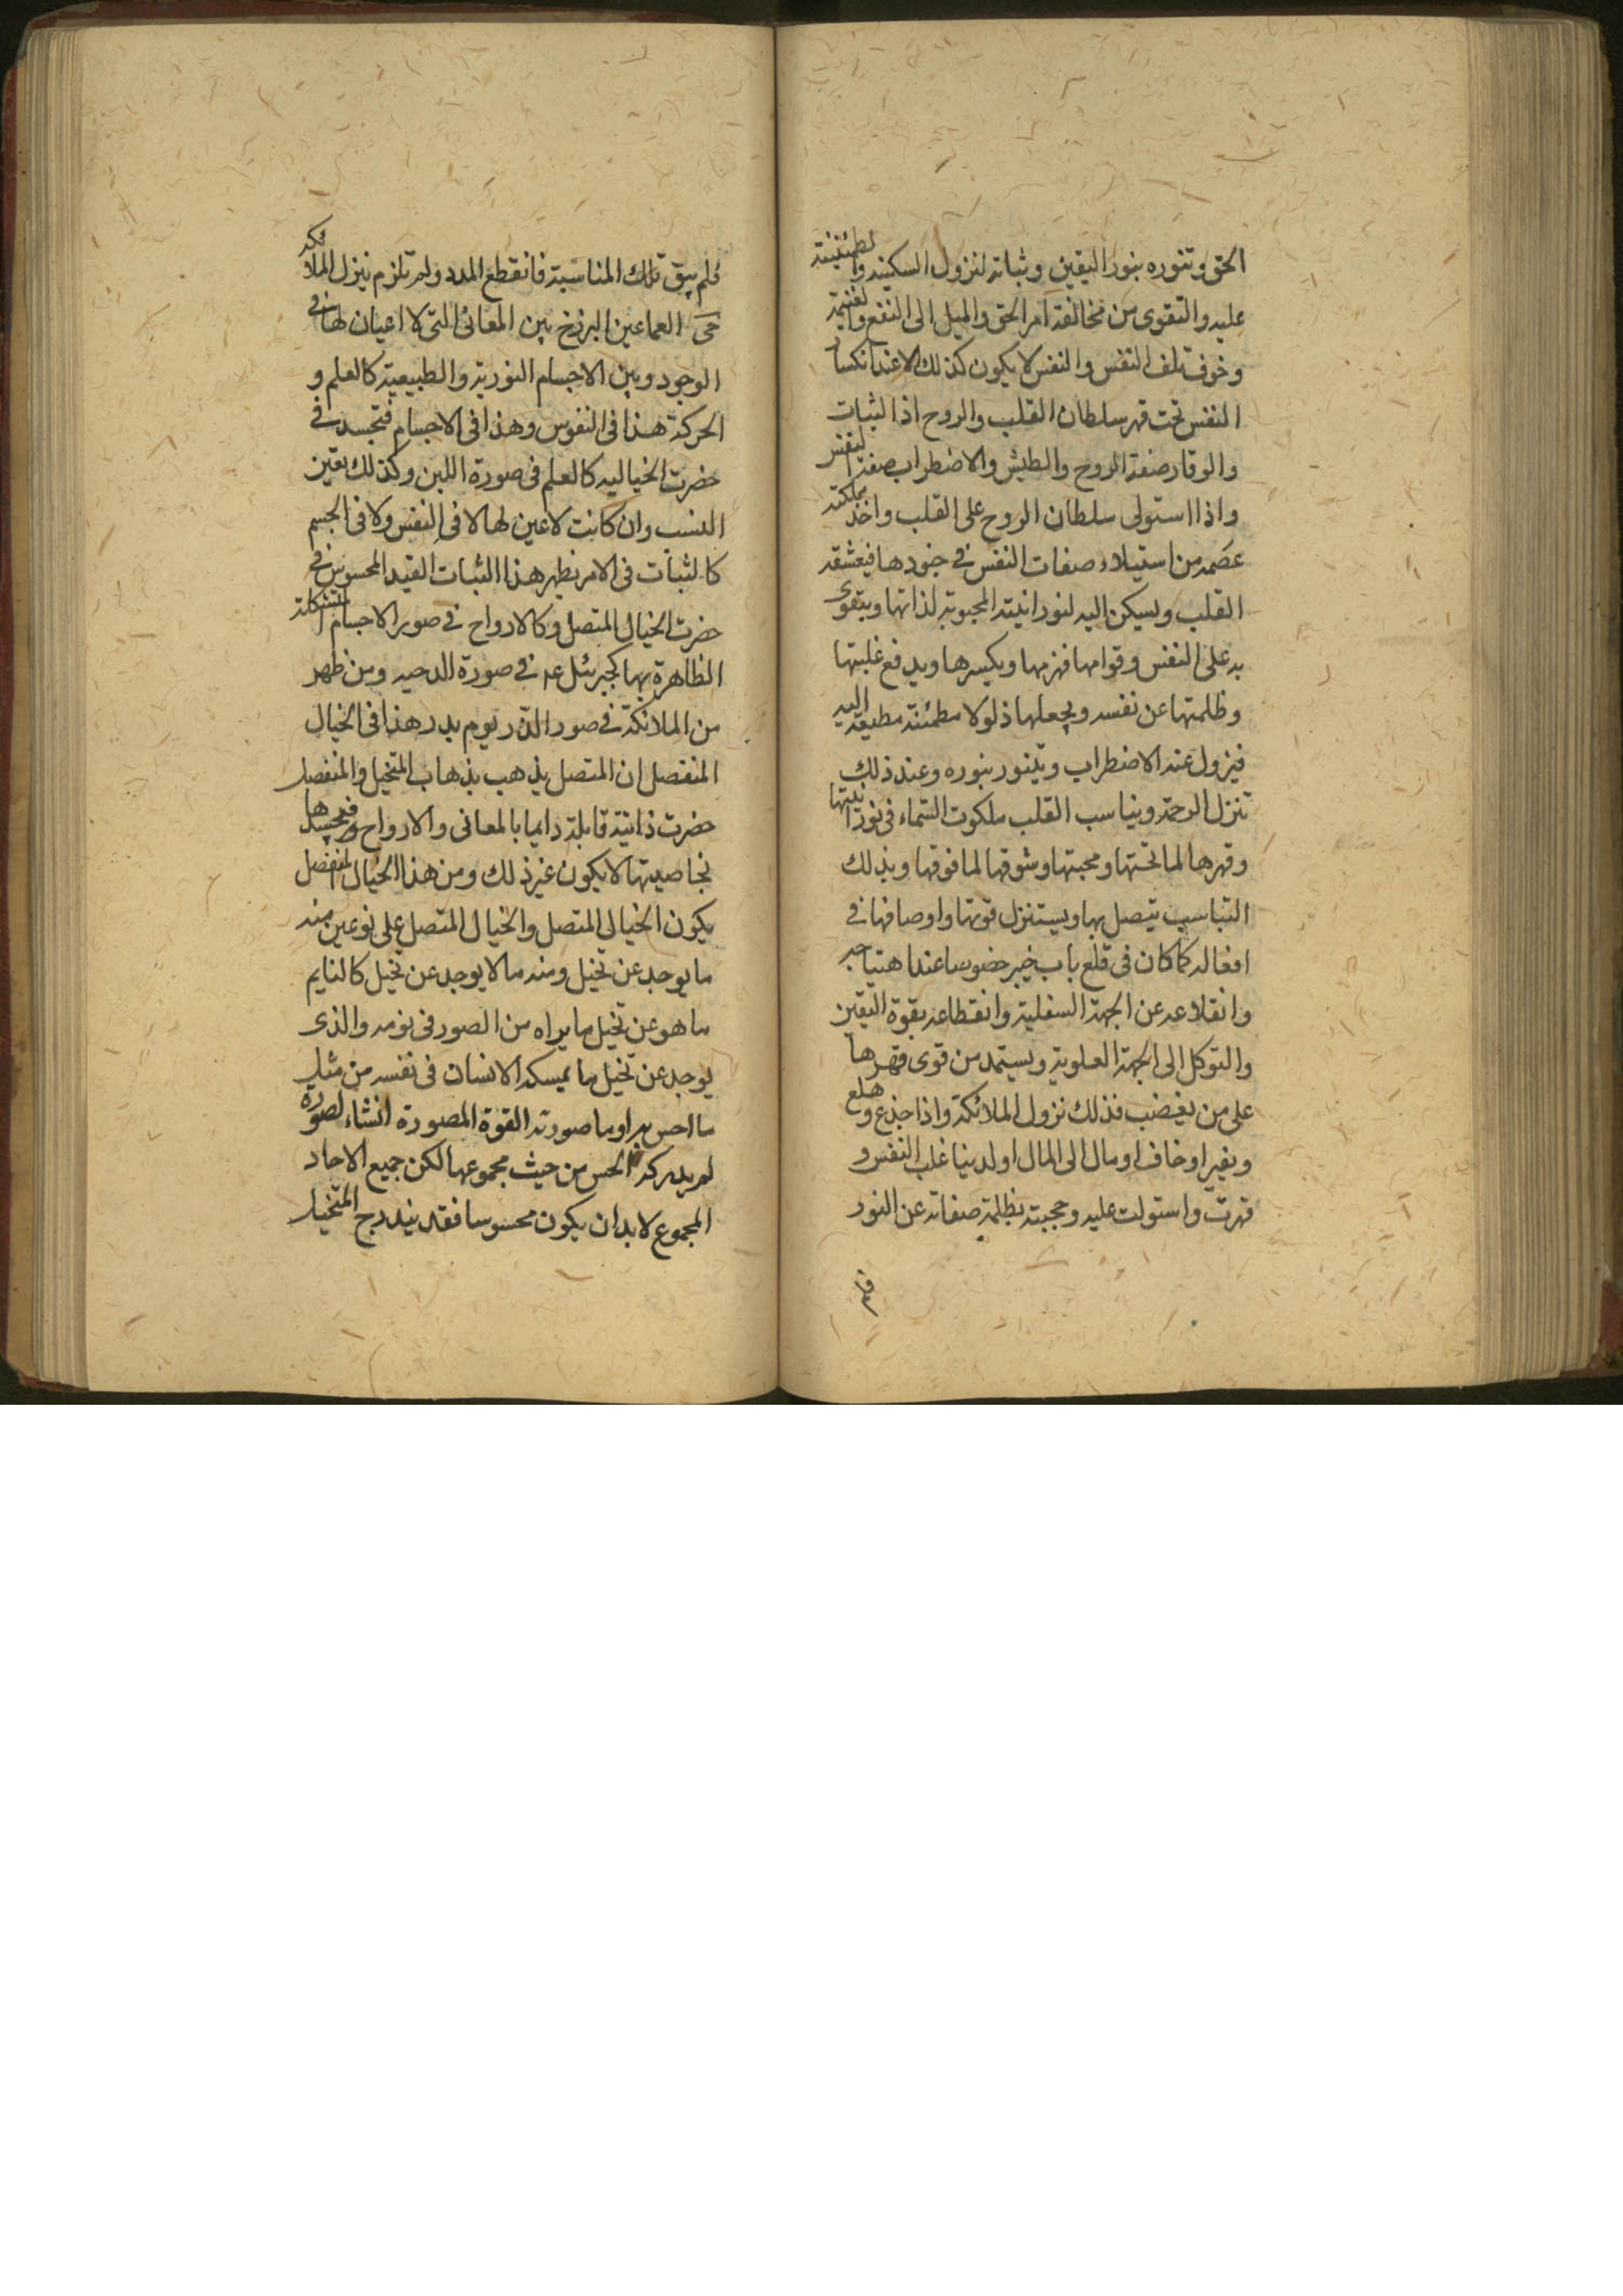 الحق وتنوره بنور اليقين وثباته لنزول السكينه والطمئنينة
عليه والتقوى من مخالفة امر الحق والميل الى النفع والغنيمة
وخوف تلف النفس والنفس لا يكون كذلك الا عند انكسار
النفس تحت قهر سلطان القلب والروح اذ الثبات
والوقار صفة الروح والطيش والاضطراب صفة النفس
واذا استولى سلطان الروح على القلب واخذ مملكته
عصمه من استيلاء صفات النفس في جنودها فيعشقه
القلب ويسكن اليه لنورانيته المحبوبة لذاتها ويتقوى
به على النفس وقوامها فهزمها ويكسرها ويدفع غلبتها
وظلمتها عن نفسه ويجعلها ذلولا مطمئنة مطيعة اليه
فيزول عنه الاضطراب ويتنور بنوره وعند ذلك
تنزل الرحمة ويناسب القلب ملكوت السماء في نورانيتها
وقهرها لما تحتها ومحبتها وشوقها لما فوقها وبذلك
التناسب يتصل بها ويستنزل قوتها واوصافها في
افعاله كما كان في قلع باب خيبر خصوصا عند اهتياجه
وانقلاعه عن الجهة السفلية وانقطاعه بقوة اليقين
والتوكل الى الجهة العلوية ويستمد من قوى قهرها
على من يغضب فذلك نزول الملائكة واذا جذع وهلع
وتغير او خاف او مال الى المال او لدينا غلب النفس و
قهرت واستولت عليه وحجبته بظلمة صفاته عن النور
فلم
فلم يبق تلك المناسبة فانقطع المدد ولم تلزم نيزل الملائكه
حى العما عين البرزخ بين المعانى التى لا اعيان لها في
الوجود وبين الاجسام النورية والطبيعية كالعلم و
الحركة هذا في النفوس وهذا في الاجسام فتجسد في
حضرت الخياليه كالعلم في صورة اللبن وكذلك يقين
النسب وان كانت لا عين لها لا في النفس ولا في الجسم
كالثبات في الامر يظهر هذا الثبات القيد المحسوس في
حضرت الخيال المتصل وكالارواح في صور الاجسام المتشكلة
الظاهرة بها كجبرئل عم في صورة الدحيه ومن ظهر
من الملائكة في صور الذر يوم بدر هذا في الخيال
المنفصل ان المتصل يذهب بذهاب المتخيل والمنفصل
حضرت ذاتية قابلة دايما بالمعانى والارواح فيجسدها
بخاصيتها لا يكون غير ذلك ومن هذا الخيال المنفصل
يكون الخيالى المتصل والخيال المتصل على نوعين منه
ما يوجد عن تخيل ومنه ما لا يوجد عن تخيل كالنايم
ما هو عن تخيل ما يراه من الصور في نومه والذى
يوجد عن تخيل ما يمسكه الانسان في نفسه من مثل
ما احس به او ما صورته القوة المصورة انشاء لصورة
لم يدركه الحس من حيث مجموعها لكن جميع الاحاد
المجموع لا بد ان يكون محسوسا فقد يندرج المتخيل